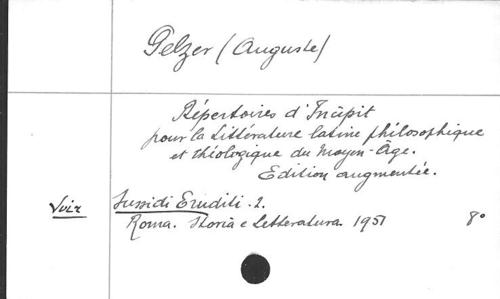 Pelzer (Auguste)
Répertoires d'Incipit
pour la Littérature latine philosophique
et théologique du Moyen-Âge.
Edition augmentée.
Voir Sussidi Eruditi. 2.
Roma. Storia e Letteratura. 1951 8°